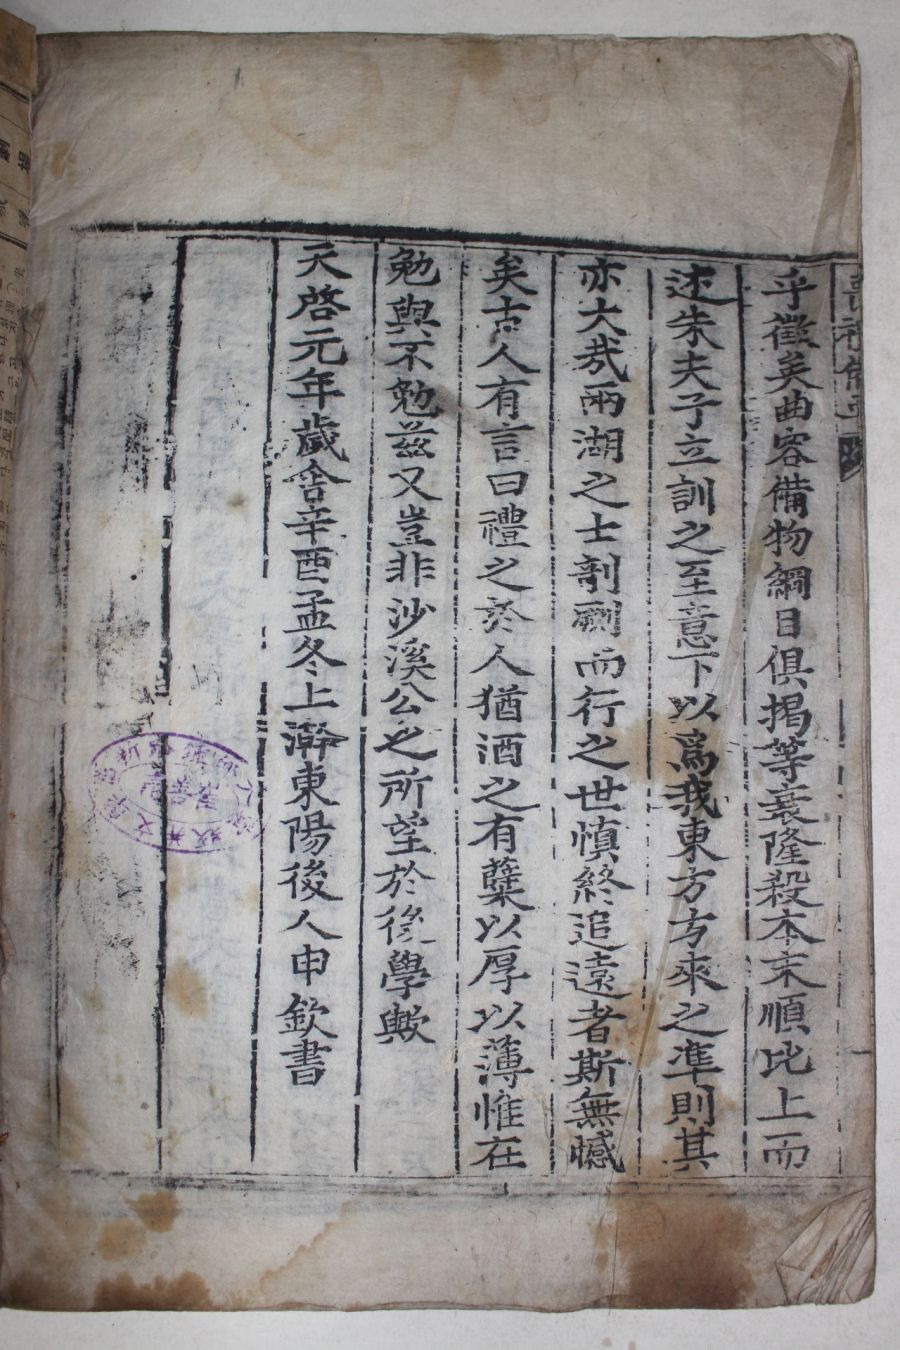 喪禮備要
乎徵矣曲容備物綱目俱揭等衰隆殺本末順比上而
述朱夫子立訓之至意下以爲我東方方來之準則其
亦大哉兩湖之士剞劂而行之世愼終追遠者斯無憾
矣古人有言曰禮之於人猶酒之有糵以厚以薄惟在
勉與不勉兹又豈非沙溪公之所望於後學歟
天啓元年歲舍辛酉孟冬上澣東陽後人申欽書